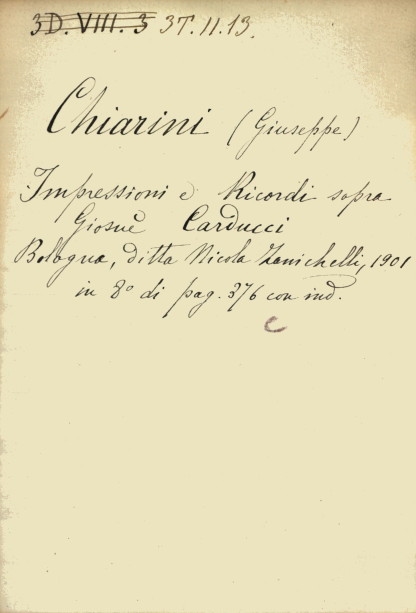 3D. VIII. 3 3T. 11. 13.
Chiarini (Giuseppe)
Impressioni e Ricordi sopra
Giosuè Carducci
Bologna, ditta Nicola Zanichelli, 1901
in 8° di pag. 376 con ind.
C